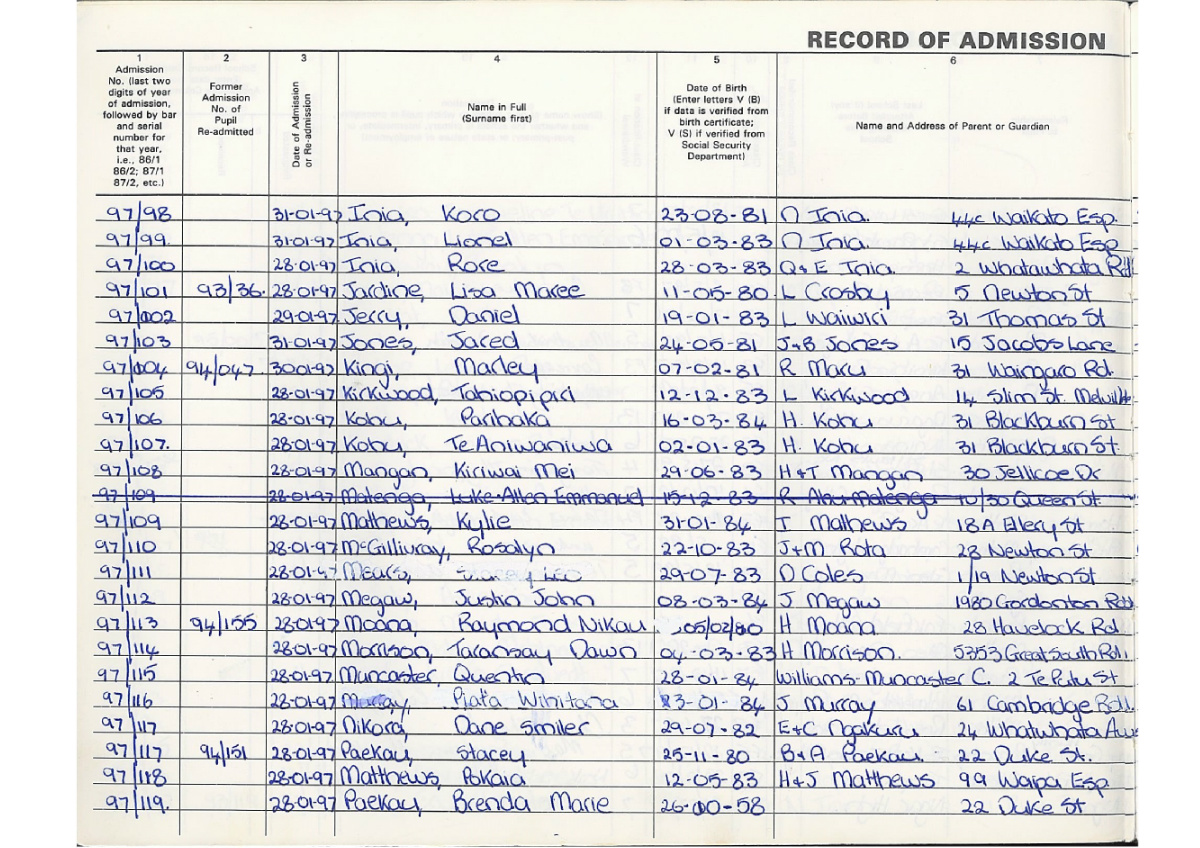 RECORD OF ADMISSION
1 2 3 4 5 6
Admission No. (last two digits of year of admission, followed by bar and serial number for that year, i.e., 86/1 86/2; 87/1 87/2, etc.)
Former Admission No. of Pupil Re-admitted
Date of Admission or Re-admission
Name in Full (Surname first)
Date of Birth (Enter letters V (B) if data is verified from birth certificate; V (S) if verified from Social Security Department)
Name and Address of Parent or Guardian
97/98 31-01-97 Inia, Koro 23-08-81 N Inia. 44c Waikato Esp.
97/99. 31-01-97 Inia, Lionel 01-03-83 N Inia. 44c Waikato Esp
97/100 28-01-97 Inia, Rore 28-03-83 Q+E Inia. 2 Whatawhata Rd
97/101 93/36. 28-01-97 Jardine, Lisa Maree 11-05-80 L Crosby 5 Newton St
97/002 29-01-97 Jerry, Daniel 19-01-83 L Waiwiri 31 Thomas St
97/103 31-01-97 Jones, Jared 24-05-81 J+B Jones 15 Jacobs Lane
97/004 94/047. 30-01-97 Kingi, Marley 07-02-81 R Maru 31 Waingaro Rd.
97/105 28-01-97 Kirkwood, 12-12-83 L Kirkwood 14 Slim St. Melville
97/106 28-01-97 Kohu, Parihaka 16-03-84 H. Kohu 31 Blackburn St
97/107. 28-01-97 Kohu, TeAniwaniwa 02-01-83 H. Kohu 31 Blackburn St.
97/108 28-01-97 Mangan, Kiriwai Mei 29-06-83 H+T Mangan 30 Jellicoe Dr
97/109 28-01-97 Matenga, Luke Allen Emmanuel 15-12-83 R Ahu Matenga 10/30 Queen St.
97/109 28-01-97 Mathews, Kylie 31-01-84 T Mathews 18A Ellery St
97/110 28-01-97 McGillivray, Rosalyn 22-10-83 J+M Rota 28 Newton St
97/111 28-01-97 Mears, 29-07-83 D Coles 1/19 Newton St
97/112 28-01-97 Megaw, Justin John 08-03-84 J Megaw 1980 Gordonton Rd
97/113 94/155 28-01-97 Moana, Raymond Nikau 05/02/80 H Moana 28 Havelock Rd.
97/114 28-01-97 Morrison, Taransay Dawn 04-03-83 H Morrison. 5353 Great South Rd.
97/115 28-01-97 Muncaster, Quentin 28-01-84 Williams-Muncaster C. 2 Te Putu St
97/116 28-01-97 Murray, Piata Wihitana 23-01-84 J Murray 61 Cambridge Rd.
97/117 28-01-97 Nikora, Dane Smiler 29-07-82 E+C Ngakuru 24 Whatwhata Ave
97/117 94/151 28-01-97 Paekau, Stacey 25-11-80 B+A Paekau. 22 Duke St.
97/118 28-01-97 Matthews, Pokaia 12-05-83 H+J Matthews 99 Waipa Esp.
97/119. 28-01-97 Paekau, Brenda Marie 26-00-58 22 Duke St